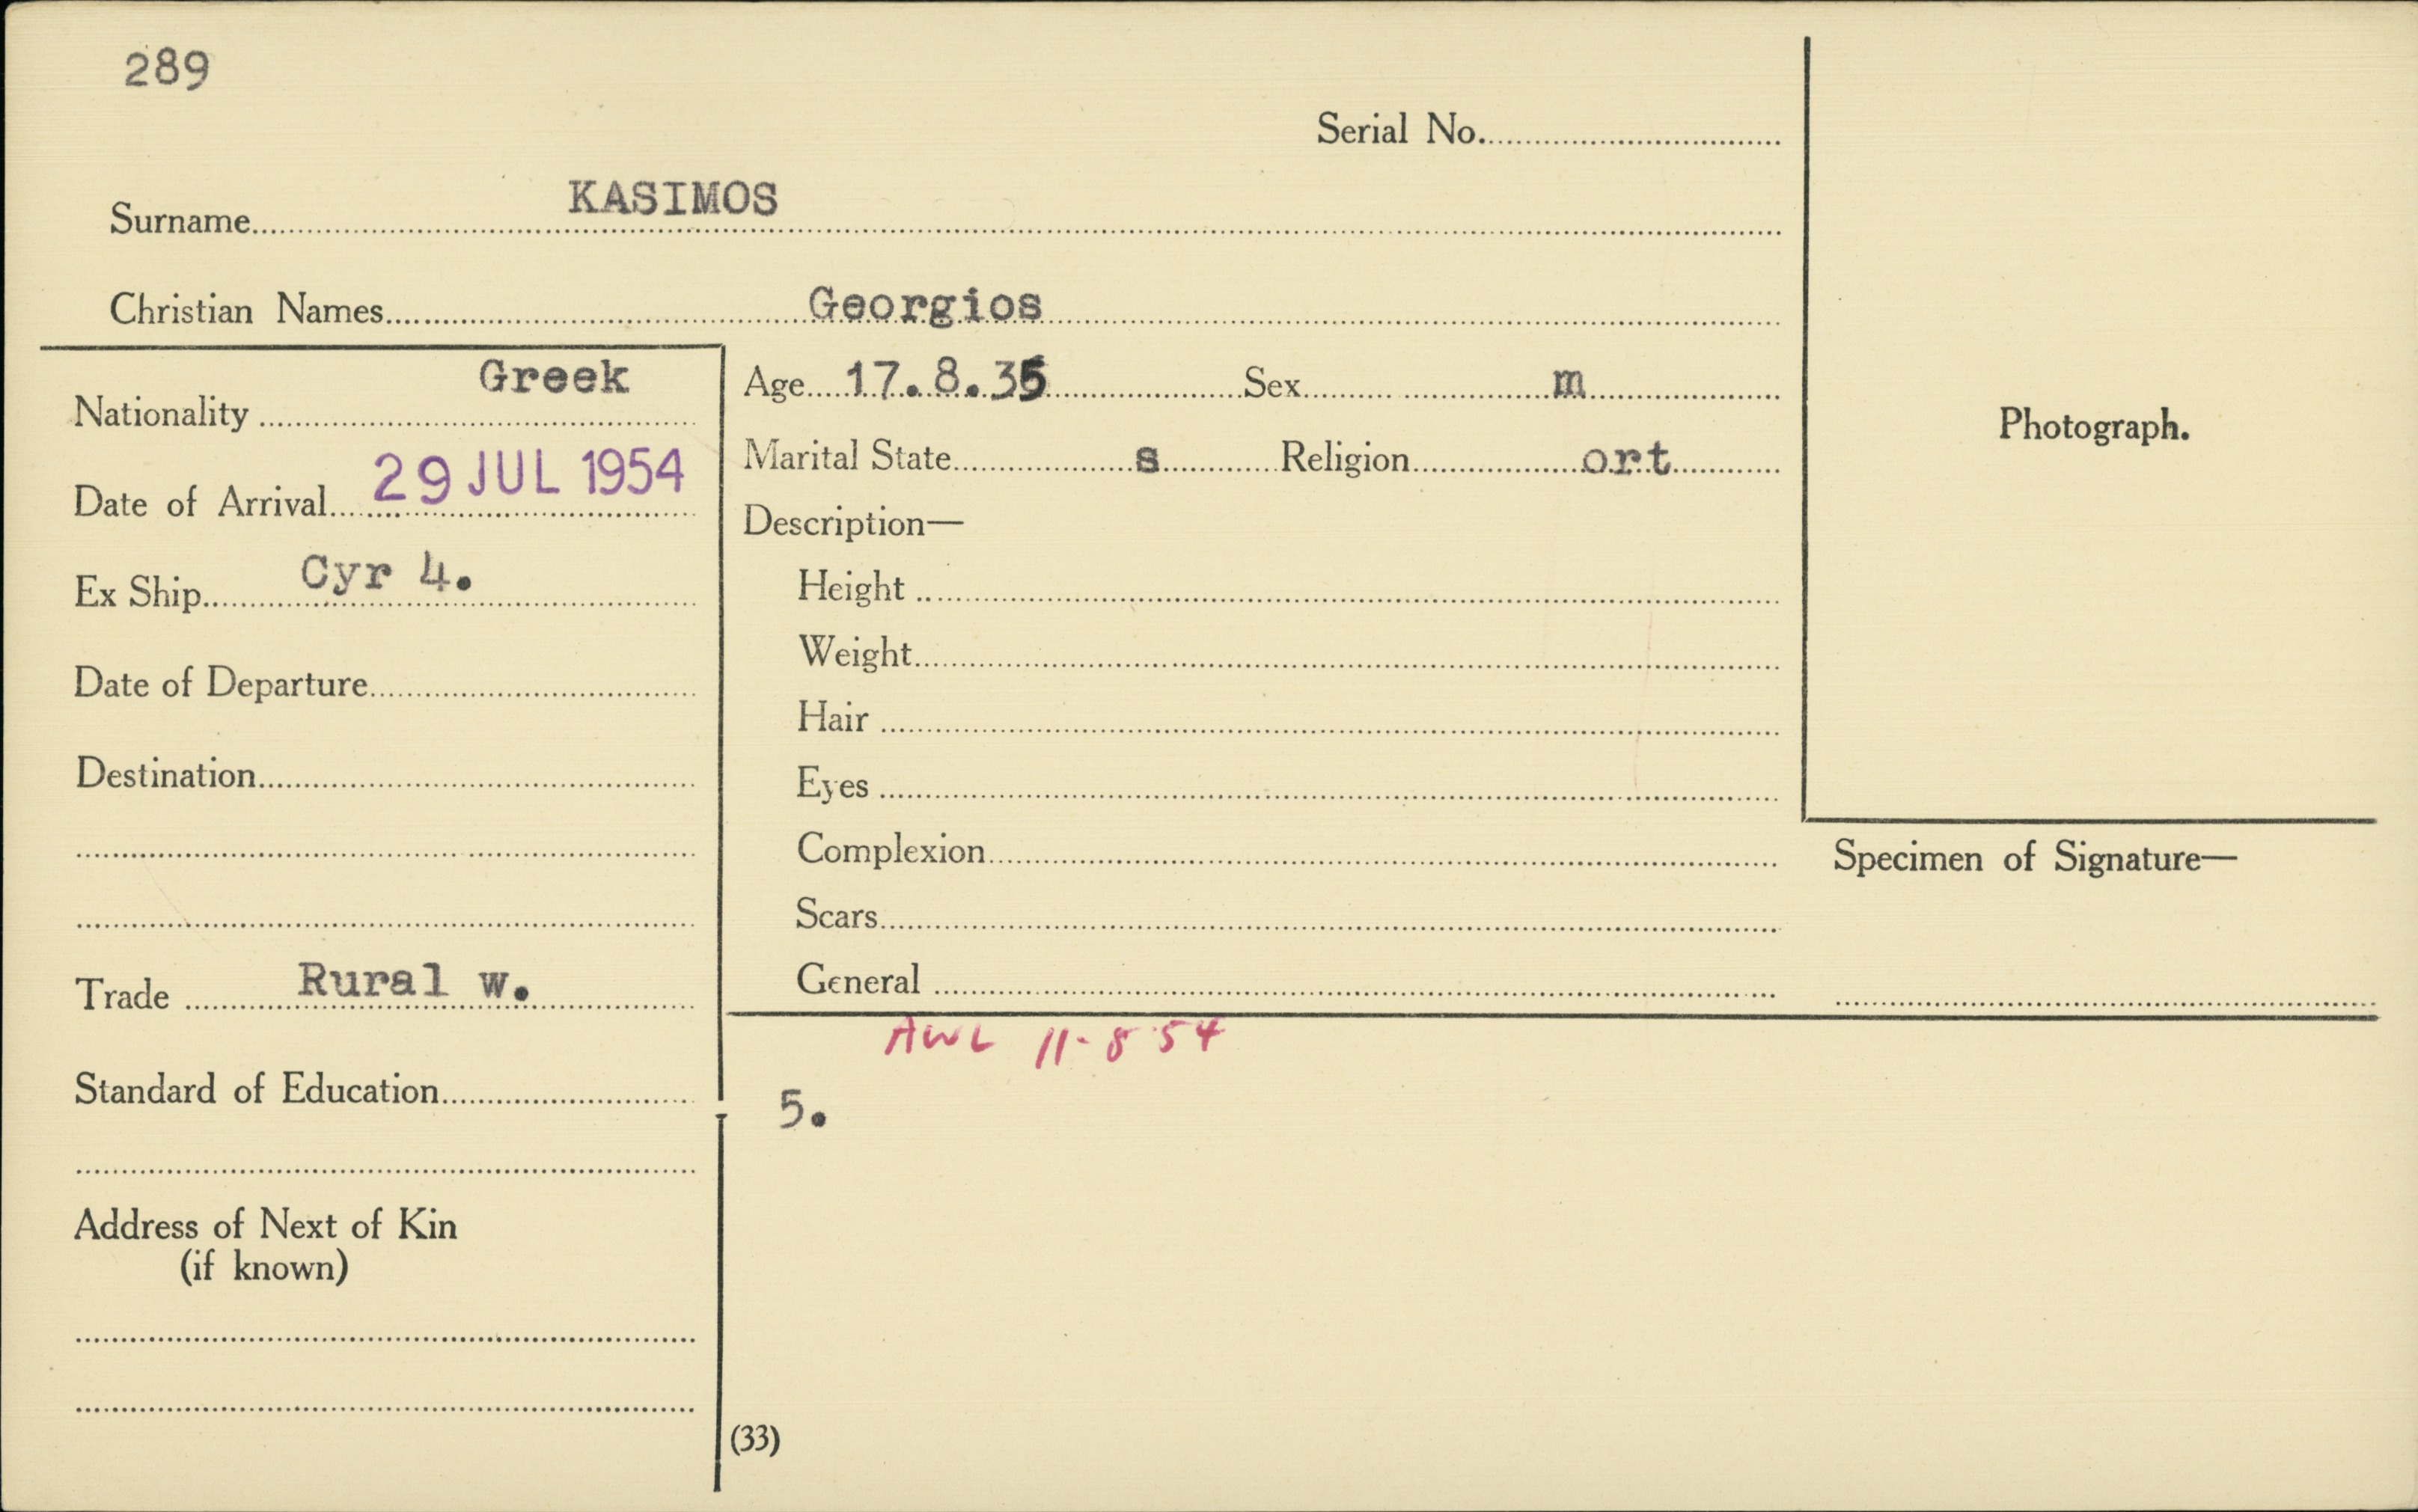 289
Serial No.
Surname KASIMOS
Christian Names Georgios
Nationality Greek
Date of Arrival 29 JUL 1954
Ex Ship Cyr 4.
Date of Departure
Destination
Trade Rural w.
Standard of Education
Address of Next of Kin
(if known)
Age 17.8.35 Sex m
Marital State s Religion ort
Description—
Height
Weight
Hair
Eyes
Complexion
Scars
General
Photograph.
Specimen of Signature—
AWL 11-8-54
5.
(33)